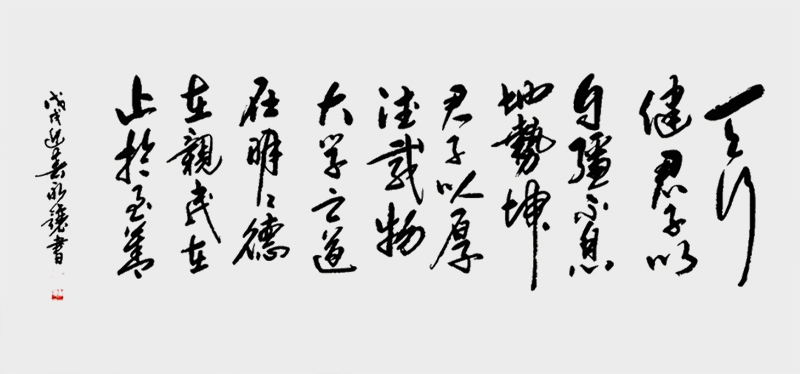 天行
健君子以
自强不息
地势坤
君子以厚
德载物
大学之道
在明明德
在親民在
止於至善
戊戌迎春永鑲書